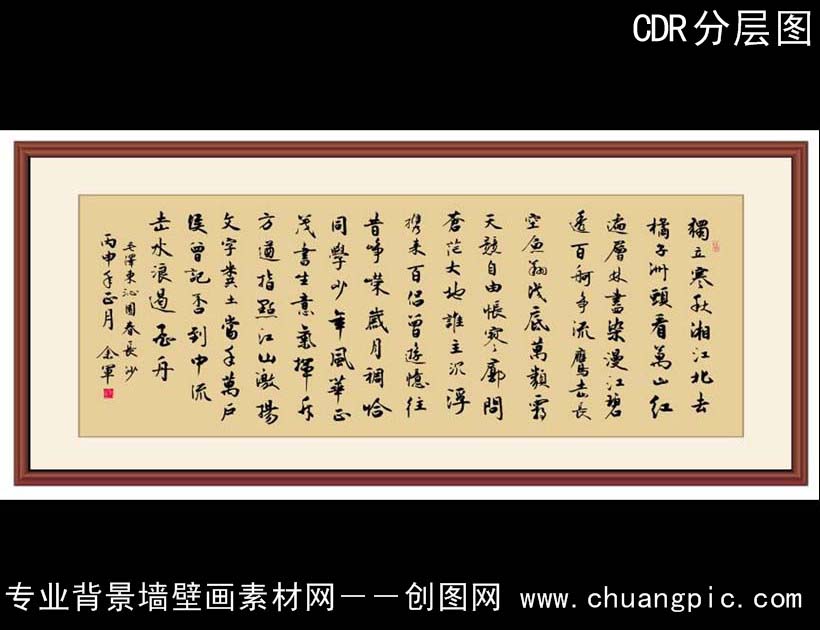 CDR分层图
獨立寒秋湘江北去
橘子洲頭看萬山紅
遍層林盡染漫江碧
透百舸爭流鷹击長
空魚翔浅底萬類霜
天競自由悵寥廓問
蒼茫大地誰主沉浮
携来百侣曾遊憶往
昔崢嶸歲月稠恰
同學少年風華正
茂書生意氣揮斥
方遒指點江山激揚
文字糞土當年萬戶
侯曾記否到中流
击水浪遏飛舟
毛澤東沁園春長沙
丙申年正月 余軍
专业背景墙壁画素材网——创图网 www.chuangpic.com